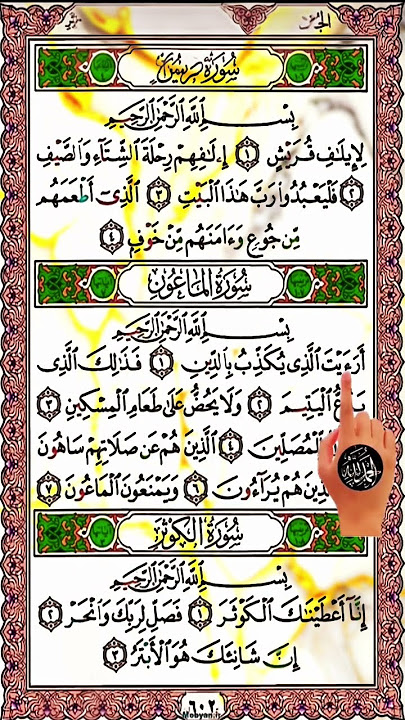 الجزء
سُورَةُ قُرَيْشٍ
بِسْمِ اللَّهِ الرَّحْمَٰنِ الرَّحِيمِ
لِإِيلَافِ قُرَيْشٍ ١ إِۦلَافِهِمْ رِحْلَةَ الشِّتَاءِ وَالصَّيْفِ
٢ فَلْيَعْبُدُوا رَبَّ هَٰذَا الْبَيْتِ ٣ الَّذِي أَطْعَمَهُم
مِّن جُوعٍ وَءَامَنَهُم مِّنْ خَوْفٍ ٤
سُورَةُ الْمَاعُونِ
بِسْمِ اللَّهِ الرَّحْمَٰنِ الرَّحِيمِ
أَرَءَيْتَ الَّذِي يُكَذِّبُ بِالدِّينِ ١ فَذَٰلِكَ الَّذِي
الْيَتِيمَ ٢ وَلَا يَحُضُّ عَلَىٰ طَعَامِ الْمِسْكِينِ ٣
لِّلْمُصَلِّينَ ٤ الَّذِينَ هُمْ عَن صَلَاتِهِمْ سَاهُونَ
الَّذِينَ هُمْ يُرَاءُونَ ٦ وَيَمْنَعُونَ الْمَاعُونَ ٧
الحمد لله
سُورَةُ الْكَوْثَرِ
بِسْمِ اللَّهِ الرَّحْمَٰنِ الرَّحِيمِ
إِنَّا أَعْطَيْنَاكَ الْكَوْثَرَ ١ فَصَلِّ لِرَبِّكَ وَانْحَرْ ٢
إِنَّ شَانِئَكَ هُوَ الْأَبْتَرُ ٣
٦٠٢
Mobyan.ir